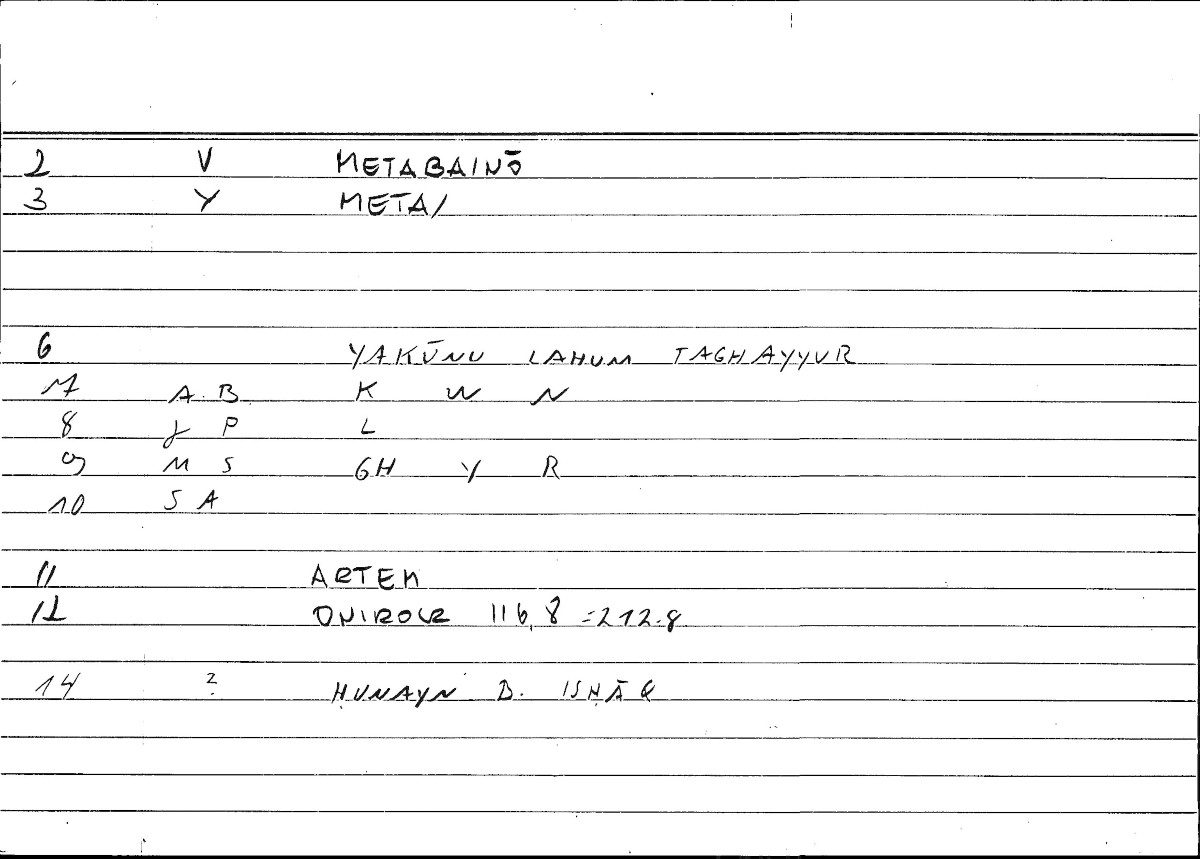 2 V METABAINŌ
3 Y META/
6 YAKŪNU LAHUM TAGHAYYUR
7 A B K W N
8 J P L
9 M S GH Y R
10 S A
11 ARTEM
12 ONIROCR 116,8 =212.8
14 ? ḤUNAYN B. ISḤĀQ